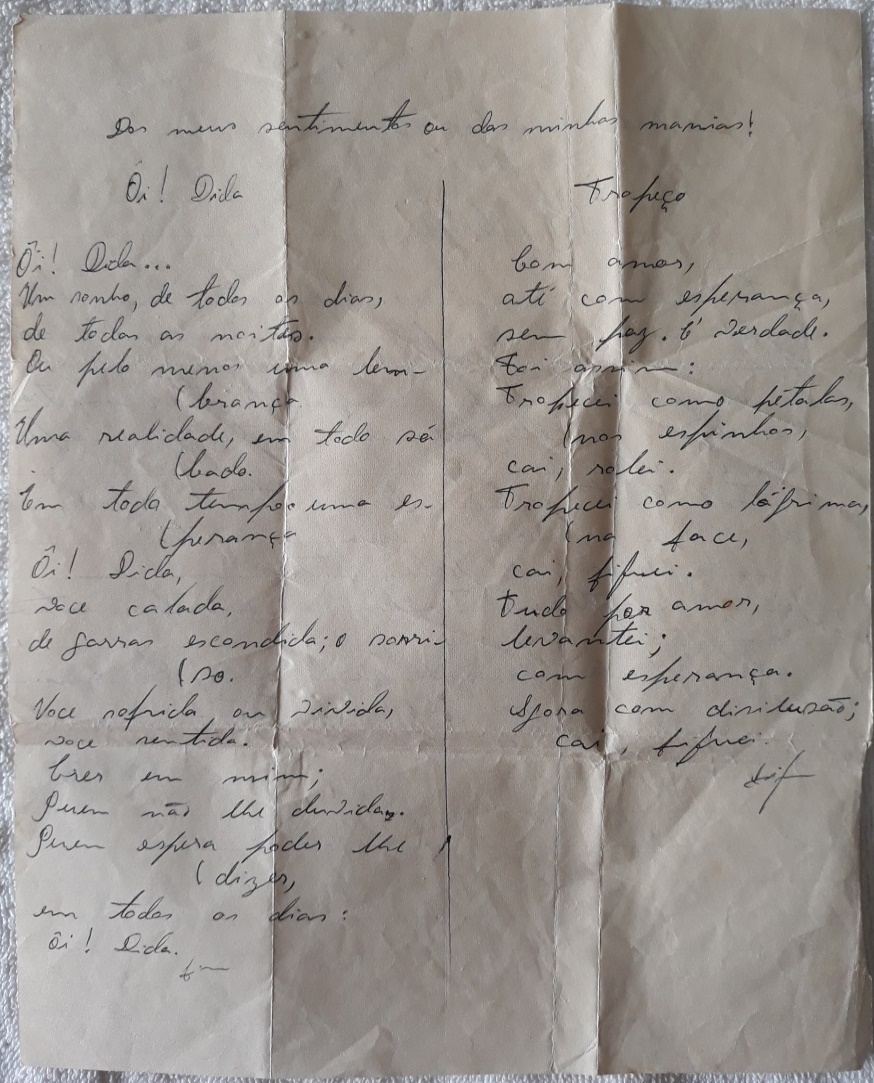 Dos meus sentimentos ou das minhas manias!
Ôi! Dida
Ôi! Dida...
Um sonho, de todos os dias,
de todas as noites.
Ou pelo menos uma lem-
(brança
Uma realidade, em todo sá
(bado.
Em todo tempo uma es-
(perança
Ôi! Dida,
voce calada,
de garras escondida; o sorri-
(so.
Voce sofrida ou vivida,
voce sentida.
Crer em mim;
Quem não lhe duvida.
Quem espera poder lhe
(dizer,
em todos os dias:
Ôi! Dida.
fim
Tropeço
Com amor,
até com esperança,
sem paz. É verdade.
Foi assim:
Tropecei como petalas,
(nos espinhos,
cai, rolei.
Tropecei como lágrima,
(na face,
cai, fiquei.
Tudo por amor,
levantei;
com esperança.
Agora com disilusão;
cai, fiquei.